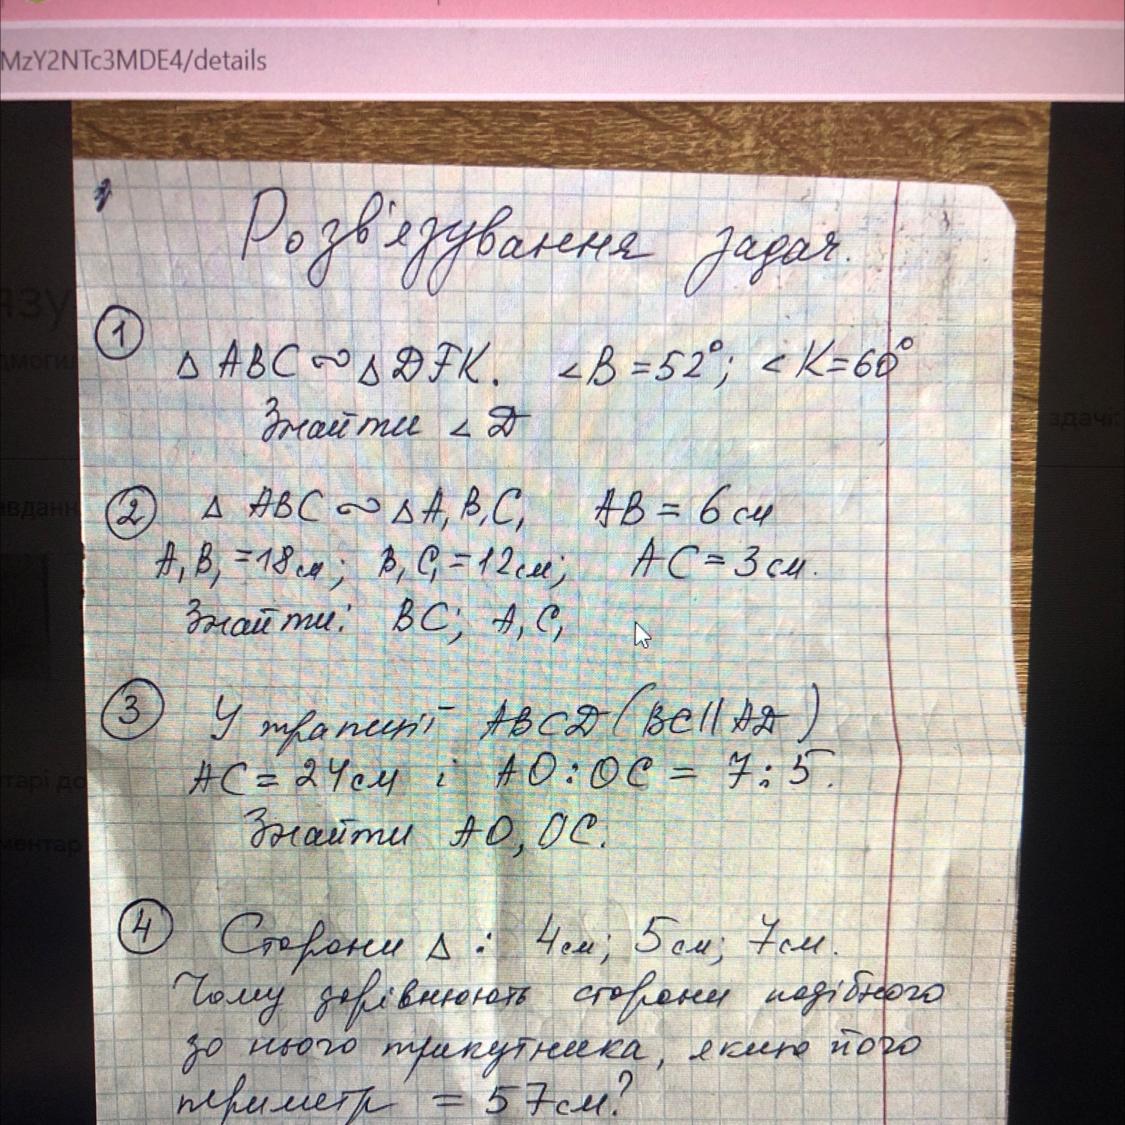 MzY2NTc3MDE4/details
Розв'язування задач.
1 Δ ABC ∾ Δ DFK. ∠B = 52°; ∠K=60°
Знайти ∠D
2 Δ ABC ∾ Δ A₁B₁C₁ AB = 6 см
A₁B₁ = 18 см; B₁C₁ = 12 см; AC = 3 см.
Знайти: BC; A₁C₁
3 У трапеції ABCD (BC || AD)
AC = 24 см і AO : OC = 7 : 5.
Знайти AO, OC.
4 Сторони Δ : 4 см; 5 см; 7 см.
Чому дорівнюють сторони подібного
до нього трикутника, якщо його
периметр = 57 см?